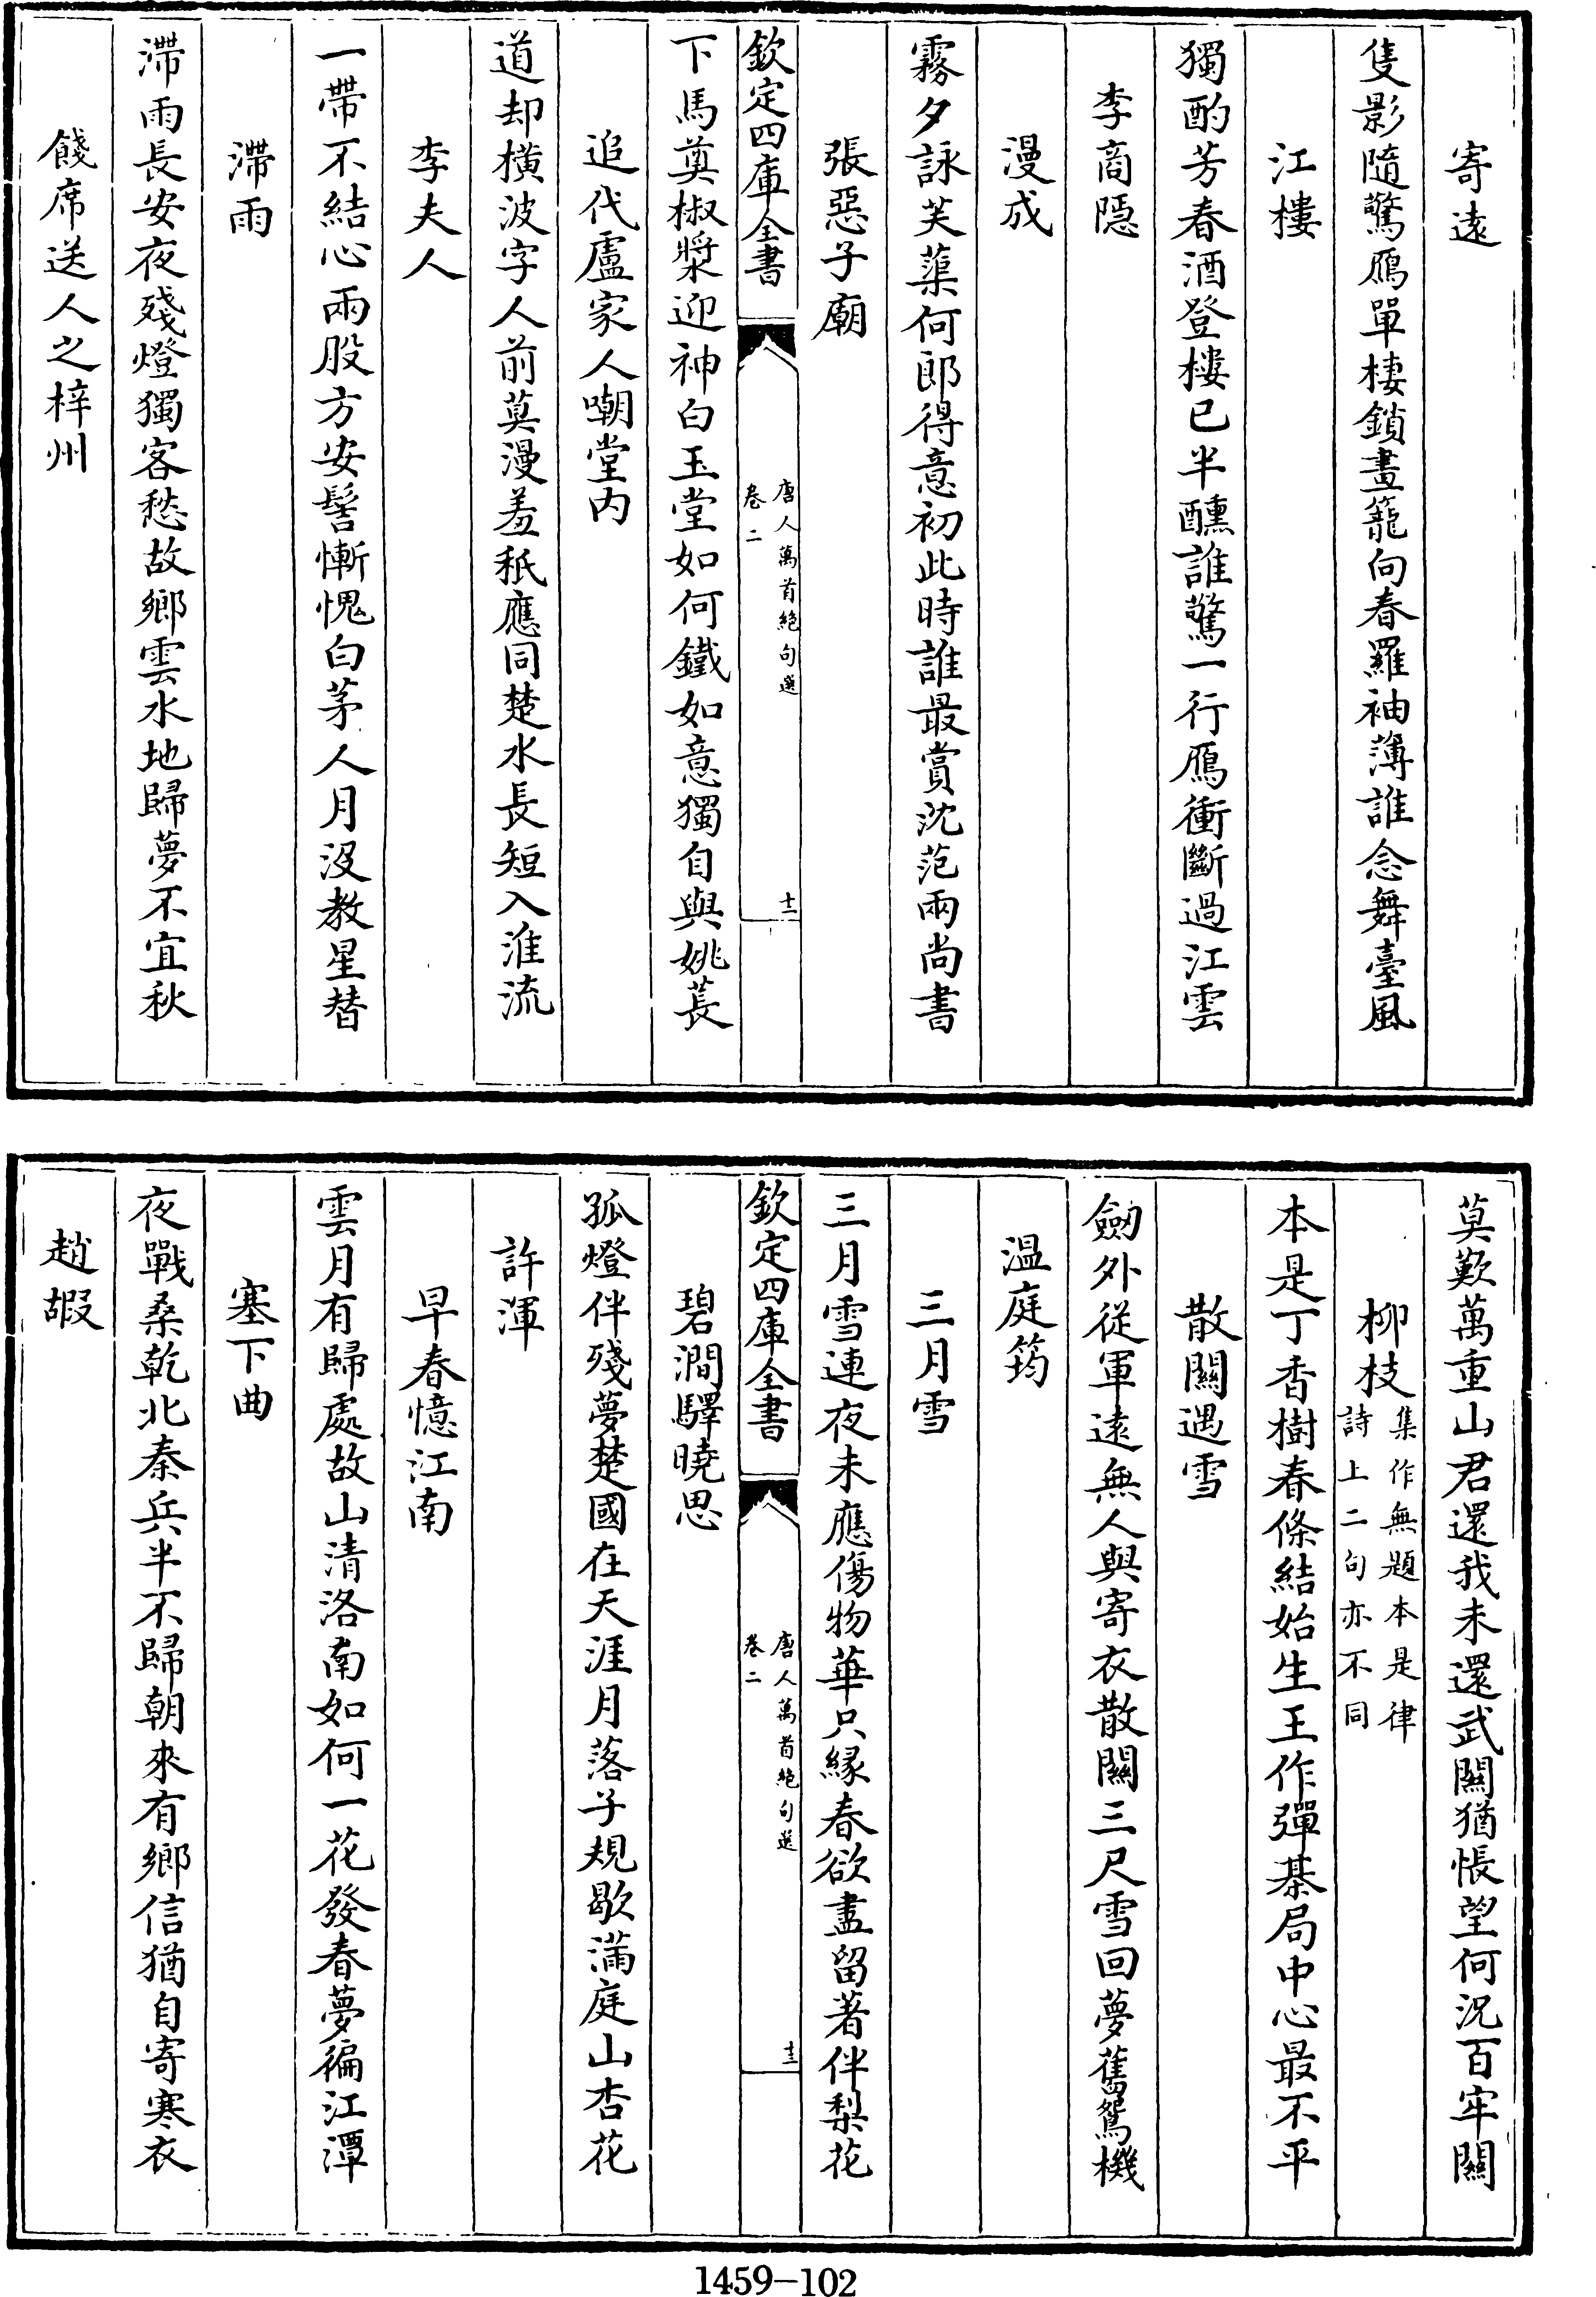 寄遠
隻影隨驚鴈單棲鎖畫籠向春羅袖薄誰念舞臺風
江樓
獨酌芳春酒登樓已半醺誰驚一行鴈衝斷過江雲
李商隱
漫成
霧夕詠芙蕖何郎得意初此時誰最賞沈范兩尚書
張惡子廟
欽定四庫全書
唐人萬首絶句選
卷二
十二
下馬奠椒漿迎神白玉堂如何鐵如意獨自與姚萇
追代盧家人嘲堂内
道却橫波字人前莫漫羞秖應同楚水長短入淮流
李夫人
一帶不結心兩股方安髻慚愧白茅人月沒教星替
滯雨
滯雨長安夜殘燈獨客愁故鄉雲水地歸夢不宜秋
餞席送人之梓州
莫歎萬重山君還我未還武關猶悵望何況百牢關
柳枝
集作無題本是律
詩上二句亦不同
本是丁香樹春條結始生玉作彈棊局中心最不平
散關遇雪
劒外從軍遠無人與寄衣散關三尺雪回夢舊鴛機
温庭筠
三月雪
三月雪連夜未應傷物華只縁春欲盡留著伴梨花
欽定四庫全書
唐人萬首絶句選
卷二
十三
碧澗驛曉思
孤燈伴殘夢楚國在天涯月落子規歇滿庭山杏花
許渾
早春憶江南
雲月有歸處故山清洛南如何一花發春夢徧江潭
塞下曲
夜戰桑乾北秦兵半不歸朝來有鄉信猶自寄寒衣
趙嘏
1459-102